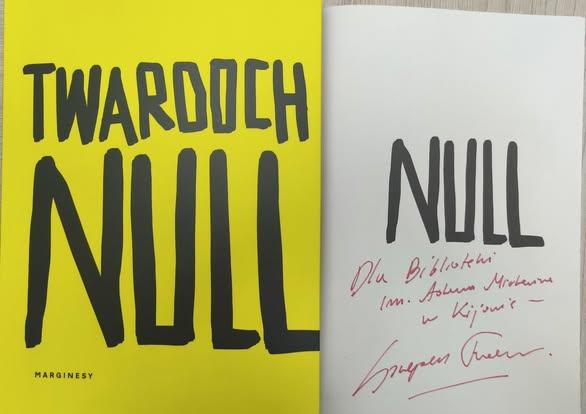 TWARDOCH
NULL
MARGINESY
NULL
Dla Biblioteki
im. Adama Mickiewicza
w Kijowie –
Szczepan Twardoch.